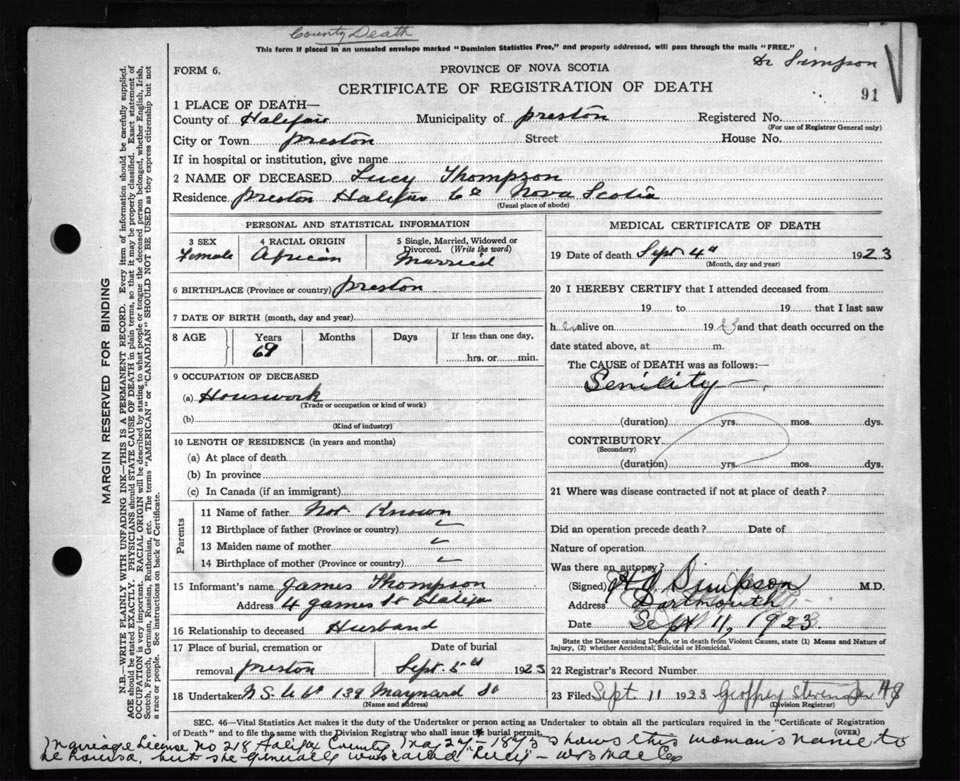 County Death
This form if placed in an unsealed envelope marked "Dominion Statistics Free," and properly addressed, will pass through the mails "FREE."
Dr Simpson
FORM 6.
PROVINCE OF NOVA SCOTIA
91
CERTIFICATE OF REGISTRATION OF DEATH
1 PLACE OF DEATH—
County of Halifax Municipality of Preston Registered No.
(For use of Registrar General only)
City or Town Preston Street House No.
If in hospital or institution, give name
2 NAME OF DECEASED Lucy Thompson
Residence Preston Halifax Co Nova Scotia
(Usual place of abode)
MARGIN RESERVED FOR BINDING
N.B.—WRITE PLAINLY WITH UNFADING INK—THIS IS A PERMANENT RECORD. Every item of information should be carefully supplied.
AGE should be stated EXACTLY. PHYSICIANS should STATE CAUSE OF DEATH in plain terms, so that it may be properly classified. Exact statement of
OCCUPATION is very important. RACIAL ORIGIN will be described by stating to what people or tongue the deceased person belonged, whether English, Irish,
Scotch, French, German, Russian, Ruthenian, etc. The terms "AMERICAN" or "CANADIAN" SHOULD NOT BE USED as they express citizenship but not
a race or people. See instructions on back of Certificate.
PERSONAL AND STATISTICAL INFORMATION
3 SEX
Female
4 RACIAL ORIGIN
African
5 Single, Married, Widowed or
Divorced. (Write the word)
Married
6 BIRTHPLACE (Province or country) Preston
7 DATE OF BIRTH (month, day and year)
8 AGE Years Months Days If less than one day,
69
hrs. or min.
9 OCCUPATION OF DECEASED
(a) Houswork
(Trade or occupation or kind of work)
(b)
(Kind of industry)
10 LENGTH OF RESIDENCE (in years and months)
(a) At place of death
(b) In province
(c) In Canada (if an immigrant)
Parents
11 Name of father Not Known
12 Birthplace of father (Province or country)
13 Maiden name of mother
14 Birthplace of mother (Province or country)
15 Informant's name James Thompson
Address 4 James St Halifax
16 Relationship to deceased Husband
17 Place of burial, cremation or Date of burial
removal Preston Sept. 1923
18 Undertaker N.S. U Co 139 Maynard St
(Name and address)
MEDICAL CERTIFICATE OF DEATH
19 Date of death Sept 4 1923
(Month, day and year)
20 I HEREBY CERTIFY that I attended deceased from
19 to 19 that I last saw
h er alive on 19 23 and that death occurred on the
date stated above, at m.
The CAUSE of DEATH was as follows:
Senility —
(duration) yrs. mos. dys.
CONTRIBUTORY
(Secondary)
(duration) yrs. mos. dys.
21 Where was disease contracted if not at place of death?
Did an operation precede death? Date of
Nature of operation
Was there an autopsy
(Signed) Simpson M.D.
Address Dartmouth
Date Sept 11, 1923
State the Disease causing Death, or in death from Violent Causes, state (1) Means and Nature of
Injury, (2) whether Accidental, Suicidal or Homicidal.
22 Registrar's Record Number
23 Filed Sept 11 1923 Geoffrey Stevens
(Division Registrar)
SEC. 46—Vital Statistics Act makes it the duty of the Undertaker or person acting as Undertaker to obtain all the particulars required in the "Certificate of Registration
of Death" and to file the same with the Division Registrar who shall issue the burial permit.
(OVER)
Marriage License No 218 Halifax County, May 24, 1873 shows this woman's name to
be Louisa, but she generally was called Lucy —